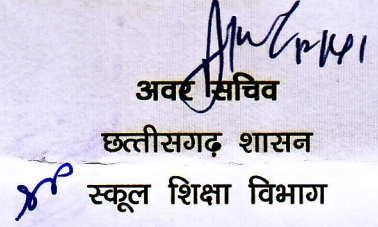 अवर सचिव
छत्तीसगढ़ शासन
स्कूल शिक्षा विभाग